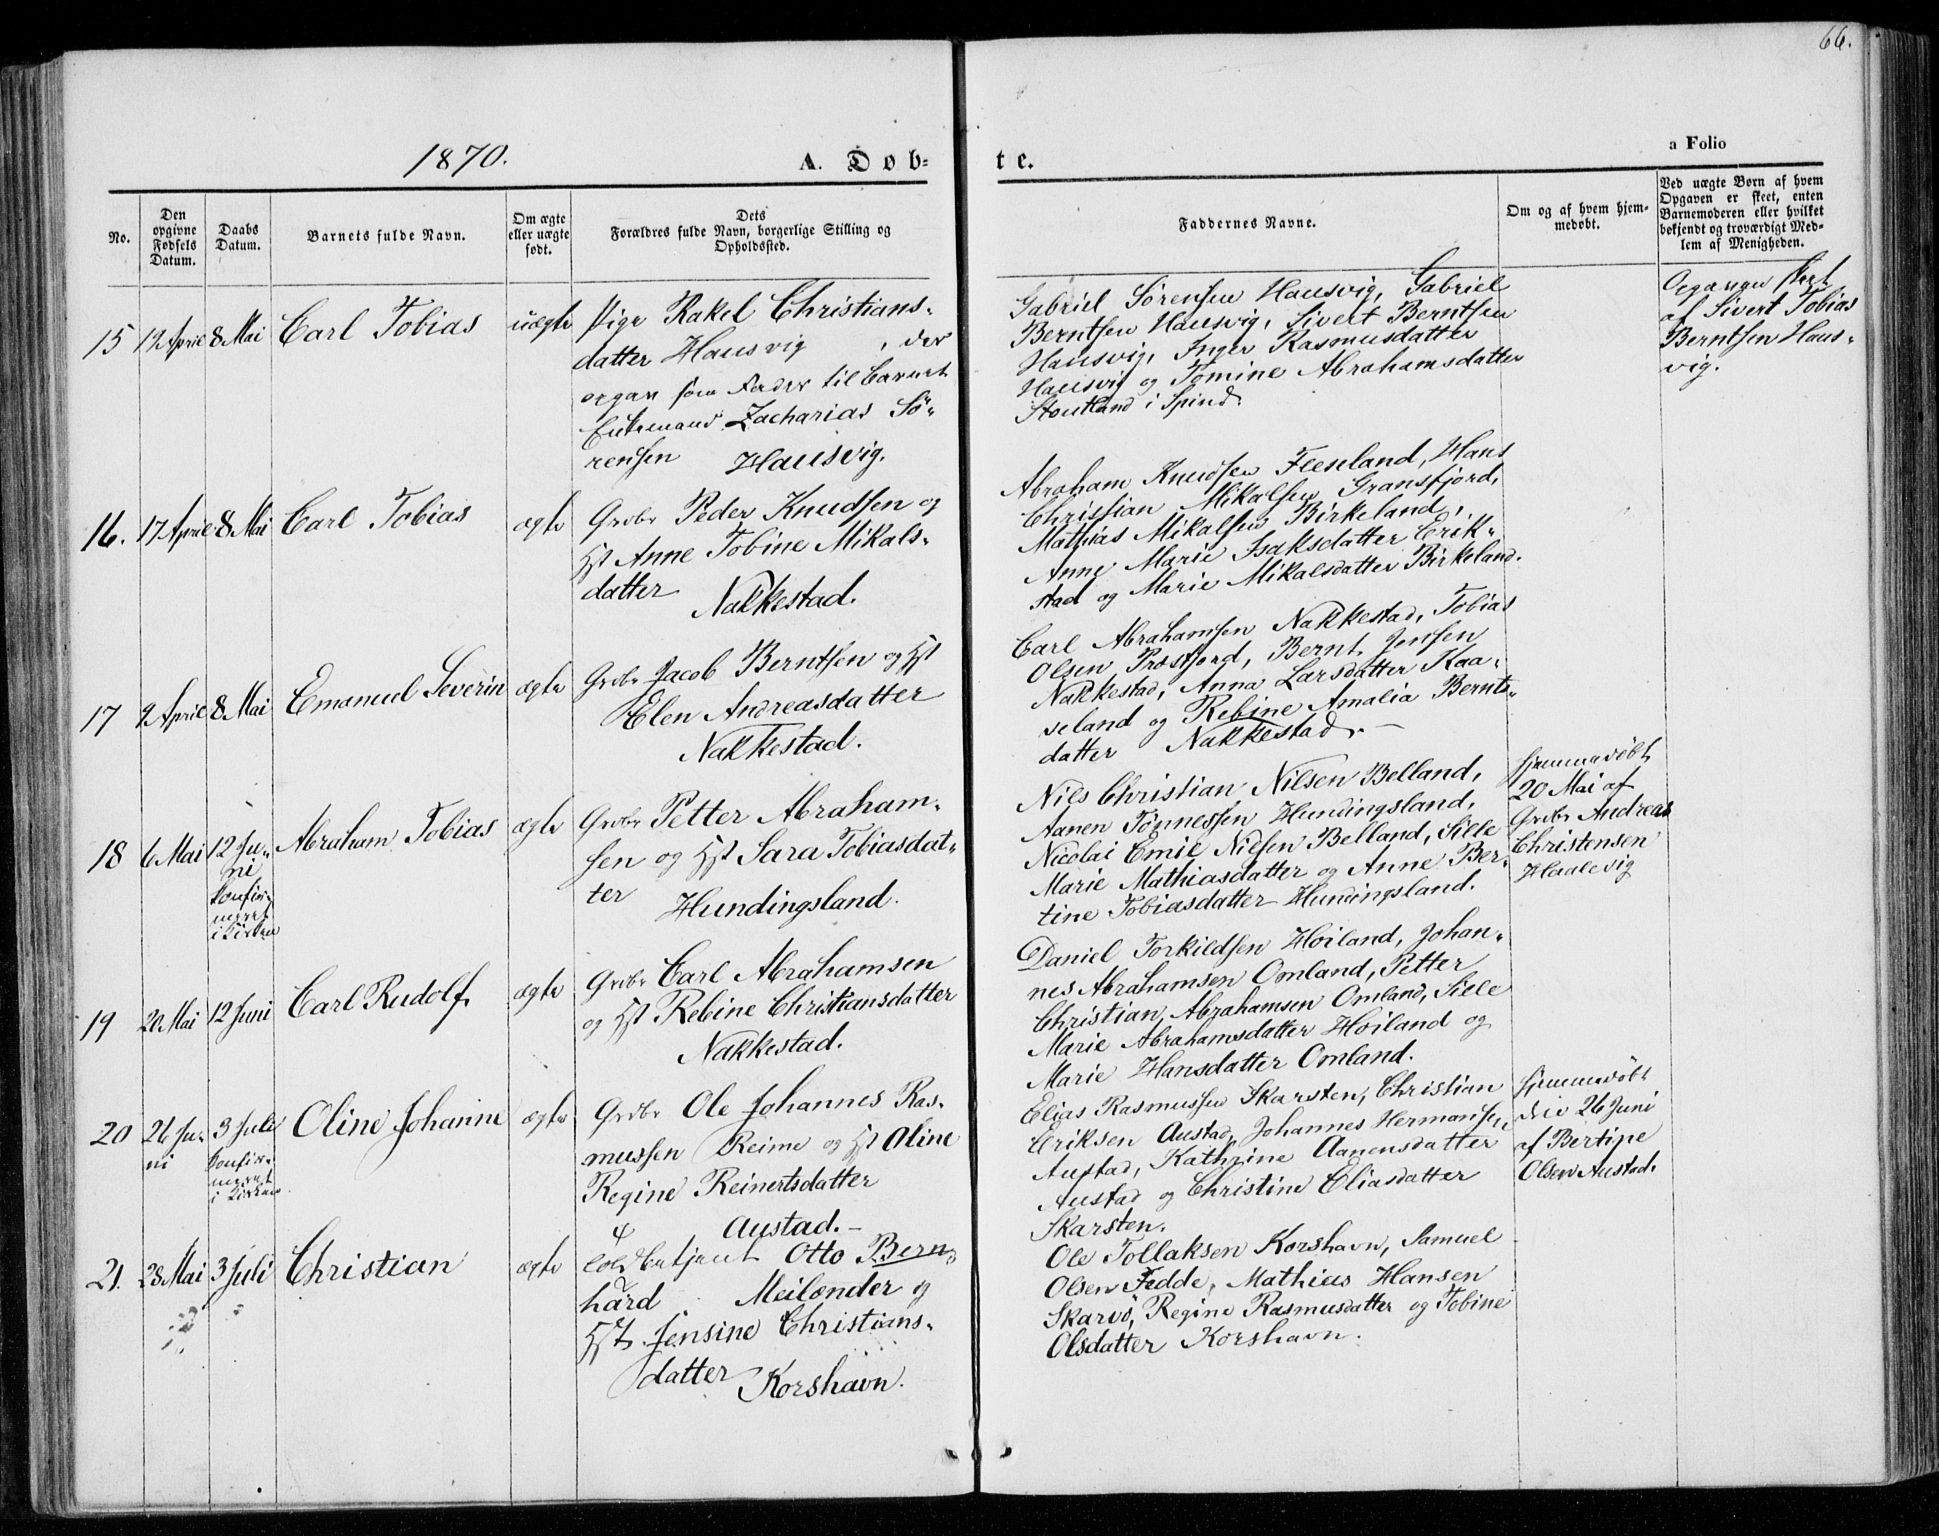 66.
1870.
A. Døb-
te.
a Folio
No.
Den
opgivne
Fødsels
Datum.
Daabs
Datum.
Barnets fulde Navn.
Om ægte
eller uægte
født.
Dets
Forældres fulde Navn, borgerlige Stilling og
Opholdssted.
Faddernes Navne.
Om og af hvem hjem-
medøbt.
Ved uægte Børn af hvem
Opgaven er skeet, enten
Barnemoderen eller hvilket
bekjendt og troværdigt Med-
lem af Menigheden.
15
12 April
8 Mai
Carl Tobias
uægte
Pige Rakel Christians-
datter Hausvig, der
opgav som Fader til Barnet
Enkemand Zacharias Sö-
rensen Hausvig.
Gabriel Sörensen Hausvig, Gabriel
Berntsen Hausvig, Sivert Berntsen
Hausvig, Inger Rasmusdatter
Hausvig og Tomine Abrahamsdatter
Stoutland i Spind.
Opgaven skeet
af Sivert Tobias
Berntsen Haus-
vig.
16.
17 April
8 Mai
Carl Tobias
ægte
Grdbr Peder Knudsen og
Hst Anne Tobine Mikals-
datter
Nakkestad.
Abraham Knudsen Feeseland, Hans
Christian Mikalsen Gransfjord,
Mathias Mikalsen Birkeland,
Anne Marie Isaksdatter Erik-
stad og Marie Mikalsdatter Birkeland.
17
2 April
8 Mai
Emanuel Severin
ægte
Grdbr Jacob Berntsen og Hst
Elen Andreasdatter
Nakkestad.
Carl Abrahamsen Nakkestad, Tobias
Olsen Prestfjord, Bernt Jonsen
Nakkestad, Anna Larsdatter Kaa-
seland og Rebine Amalia Bernts-
datter Nakkestad. -
18
6 Mai
12 Ju-
ni
konfir-
meret
i Kirken
Abraham Tobias
ægte
Grdbr Petter Abraham-
sen og Hst Sara Tobiasdat-
ter
Hundingsland.
Nils Christian Nilsen Belland,
Aanen Tönnessen Hundingsland,
Nicolai Emil Nilsen Belland, Sille
Marie Mathiasdatter og Anne Ber-
tine Tobiasdatter Hundingsland.
hjemmedöbt
20 Mai af
Grdbr Andreas
Christensen
Haalevig
19
20 Mai
12 Juni
Carl Rudolf
ægte
Grdbr Carl Abrahamsen
og Hst Rebine Christiansdatter
Nakkestad.
Daniel Torkildsen Höiland, Johan-
nes Abrahamsen Omland, Petter
Christian Abrahamsen Omland, Sille
Marie Abrahamsdatter Höiland og
Marie Hansdatter Omland.
20
26 Ju-
ni
3 Juli
konfir-
meret
i Kirken
Oline Johanne
ægte
Grdbr Ole Johannes Ras-
mussen Reime og Hst Oline
Regine Reinertsdatter
Austad. -
Elias Rasmussen Skarsten, Christian
Eriksen Austad, Johannes Hermansen
Austad, Kathrine Aanensdatter
Austad og Christine Eliasdatter
Skarsten.
hjemmedöbt
den 26 Juni
af Bertine
Olsen Austad.
21.
28 Mai
3 Juli
Christian
ægte
Otto Bern-
hard Meilænder og
Hst Jensine Christians-
datter
Korshavn.
Ole Tollaksen Korshavn, Samuel
Olsen Fedde, Mathias Hansen
Skarvö, Regine Rasmusdatter og Tobine
Olsdatter Korshavn.